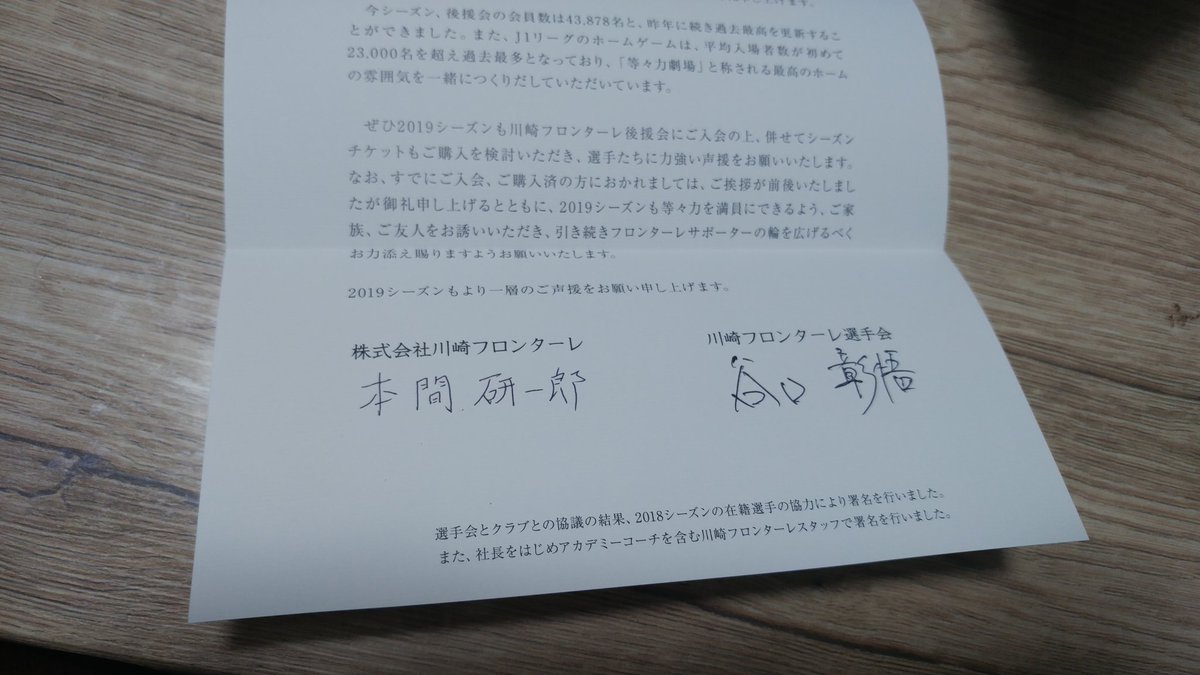 今シーズン、後援会の会員数は43,878名と、昨年に続き過去最高を更新するこ
とができました。また、J1リーグのホームゲームは、平均入場者数が初めて
23,000名を超え過去最多となっており、「等々力劇場」と称される最高のホーム
の雰囲気を一緒につくりだしていただいています。
ぜひ2019シーズンも川崎フロンターレ後援会にご入会の上、併せてシーズン
チケットもご購入を検討いただき、選手たちに力強い声援をお願いいたします。
なお、すでにご入会、ご購入済の方におかれましては、ご挨拶が前後いたしまし
たが御礼申し上げるとともに、2019シーズンも等々力を満員にできるよう、ご家
族、ご友人をお誘いいただき、引き続きフロンターレサポーターの輪を広げるべく
お力添え賜りますようお願いいたします。
2019シーズンもより一層のご声援をお願い申し上げます。
株式会社川崎フロンターレ
本間 研一郎
川崎フロンターレ選手会
谷口 彰悟
選手会とクラブとの協議の結果、2018シーズンの在籍選手の協力により署名を行いました。
また、社長をはじめアカデミーコーチを含む川崎フロンターレスタッフで署名を行いました。